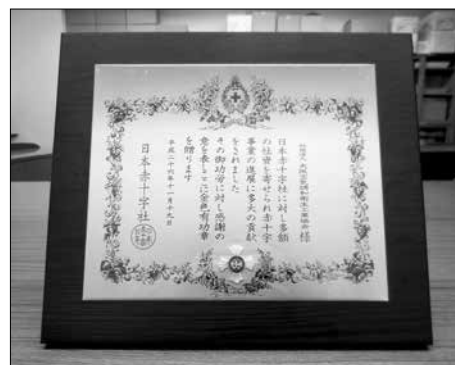 大阪空気調和衛生工業協会 様
日本赤十字社に対し多額
の社資を寄せられ赤十字
事業の進展に多大の貢献
をされました
その御功労に対し感謝の
意を表しここに金色有功章
を贈ります
平成二十六年十一月十九日
日本赤十字社